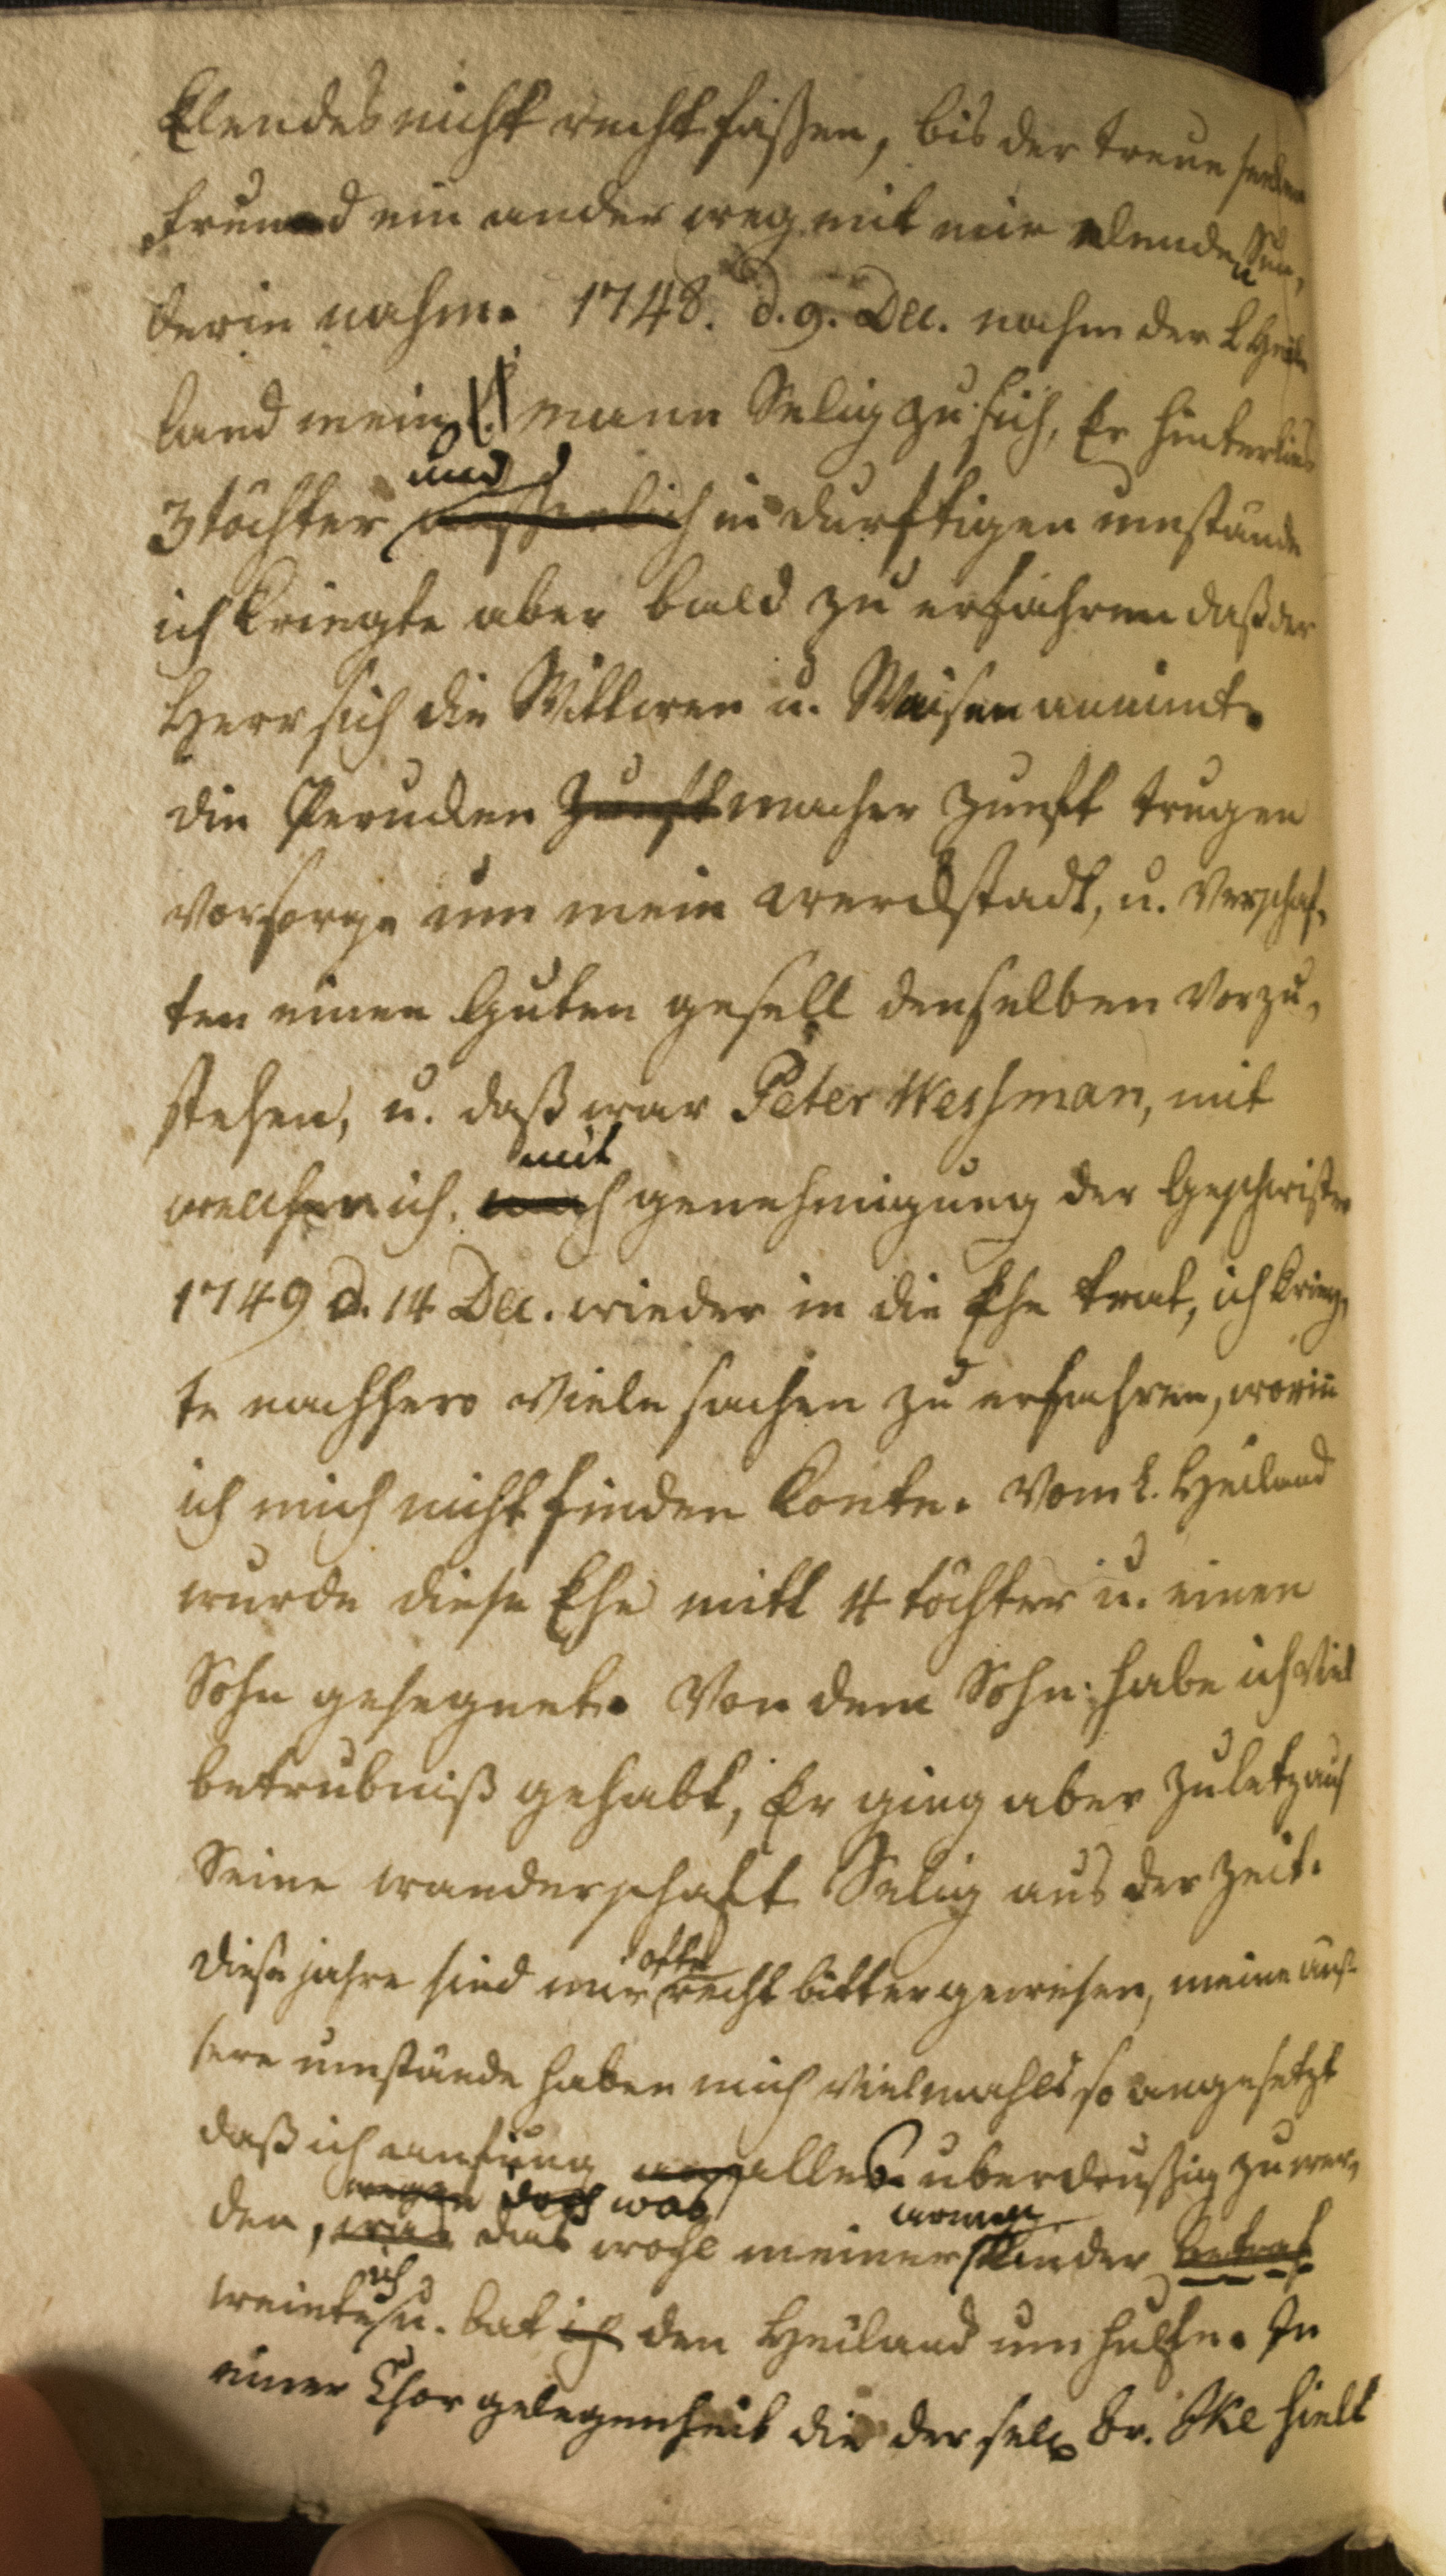 Elendes nicht recht faßen, bis der treue seelen
freund ein ander weg mit mir elenden Sün,
derin nahm. 1748. d. 9. Dec. nahm der l. Hei
land mein l. mann Selig zu sich, Er hinterlies
3 töchter und äusserlich in durftigen umstände
ich kriegte aber bald zu erfahren daß der
Herr sich die Wittwen u. Waisen annimt.
die Perucken Zunft macher Zunft trugen
vorsorge um mein werckstadt, u. verschaf,
ten einen Guten gesell denselben vorzu,
stehen, u. daß war Peter Wessman, mit
welchen ich, nach mit genehmigung der Geschwister
1749 d. 14 Dec. wieder in die Ehe trat, ich krieg,
te nachhero viele sachen zu erfahren, worin
ich mich nicht finden konte. Vom l. Heiland
wurde diese Ehe mitt 4 töchter u. einen
Sohn gesegnet. Von dem Sohn habe ich viel
betrübniß gehabt, Er ging aber zuletz auf
Seine wanderschaft Selig aus der Zeit.
diese jahre sind mir ofte recht bitter gewesen, meine äus-
sere umstände haben mich vielmahls so angesetzt
daß ich anfung alles uberdrußig zu wer,
den, wegen doch was das wohl meiner armen Kinder betraf
weinte ich u. bat ich den Heiland um hülfe. In
einer Chor gelegenheit die der selg Br. Öke hielt